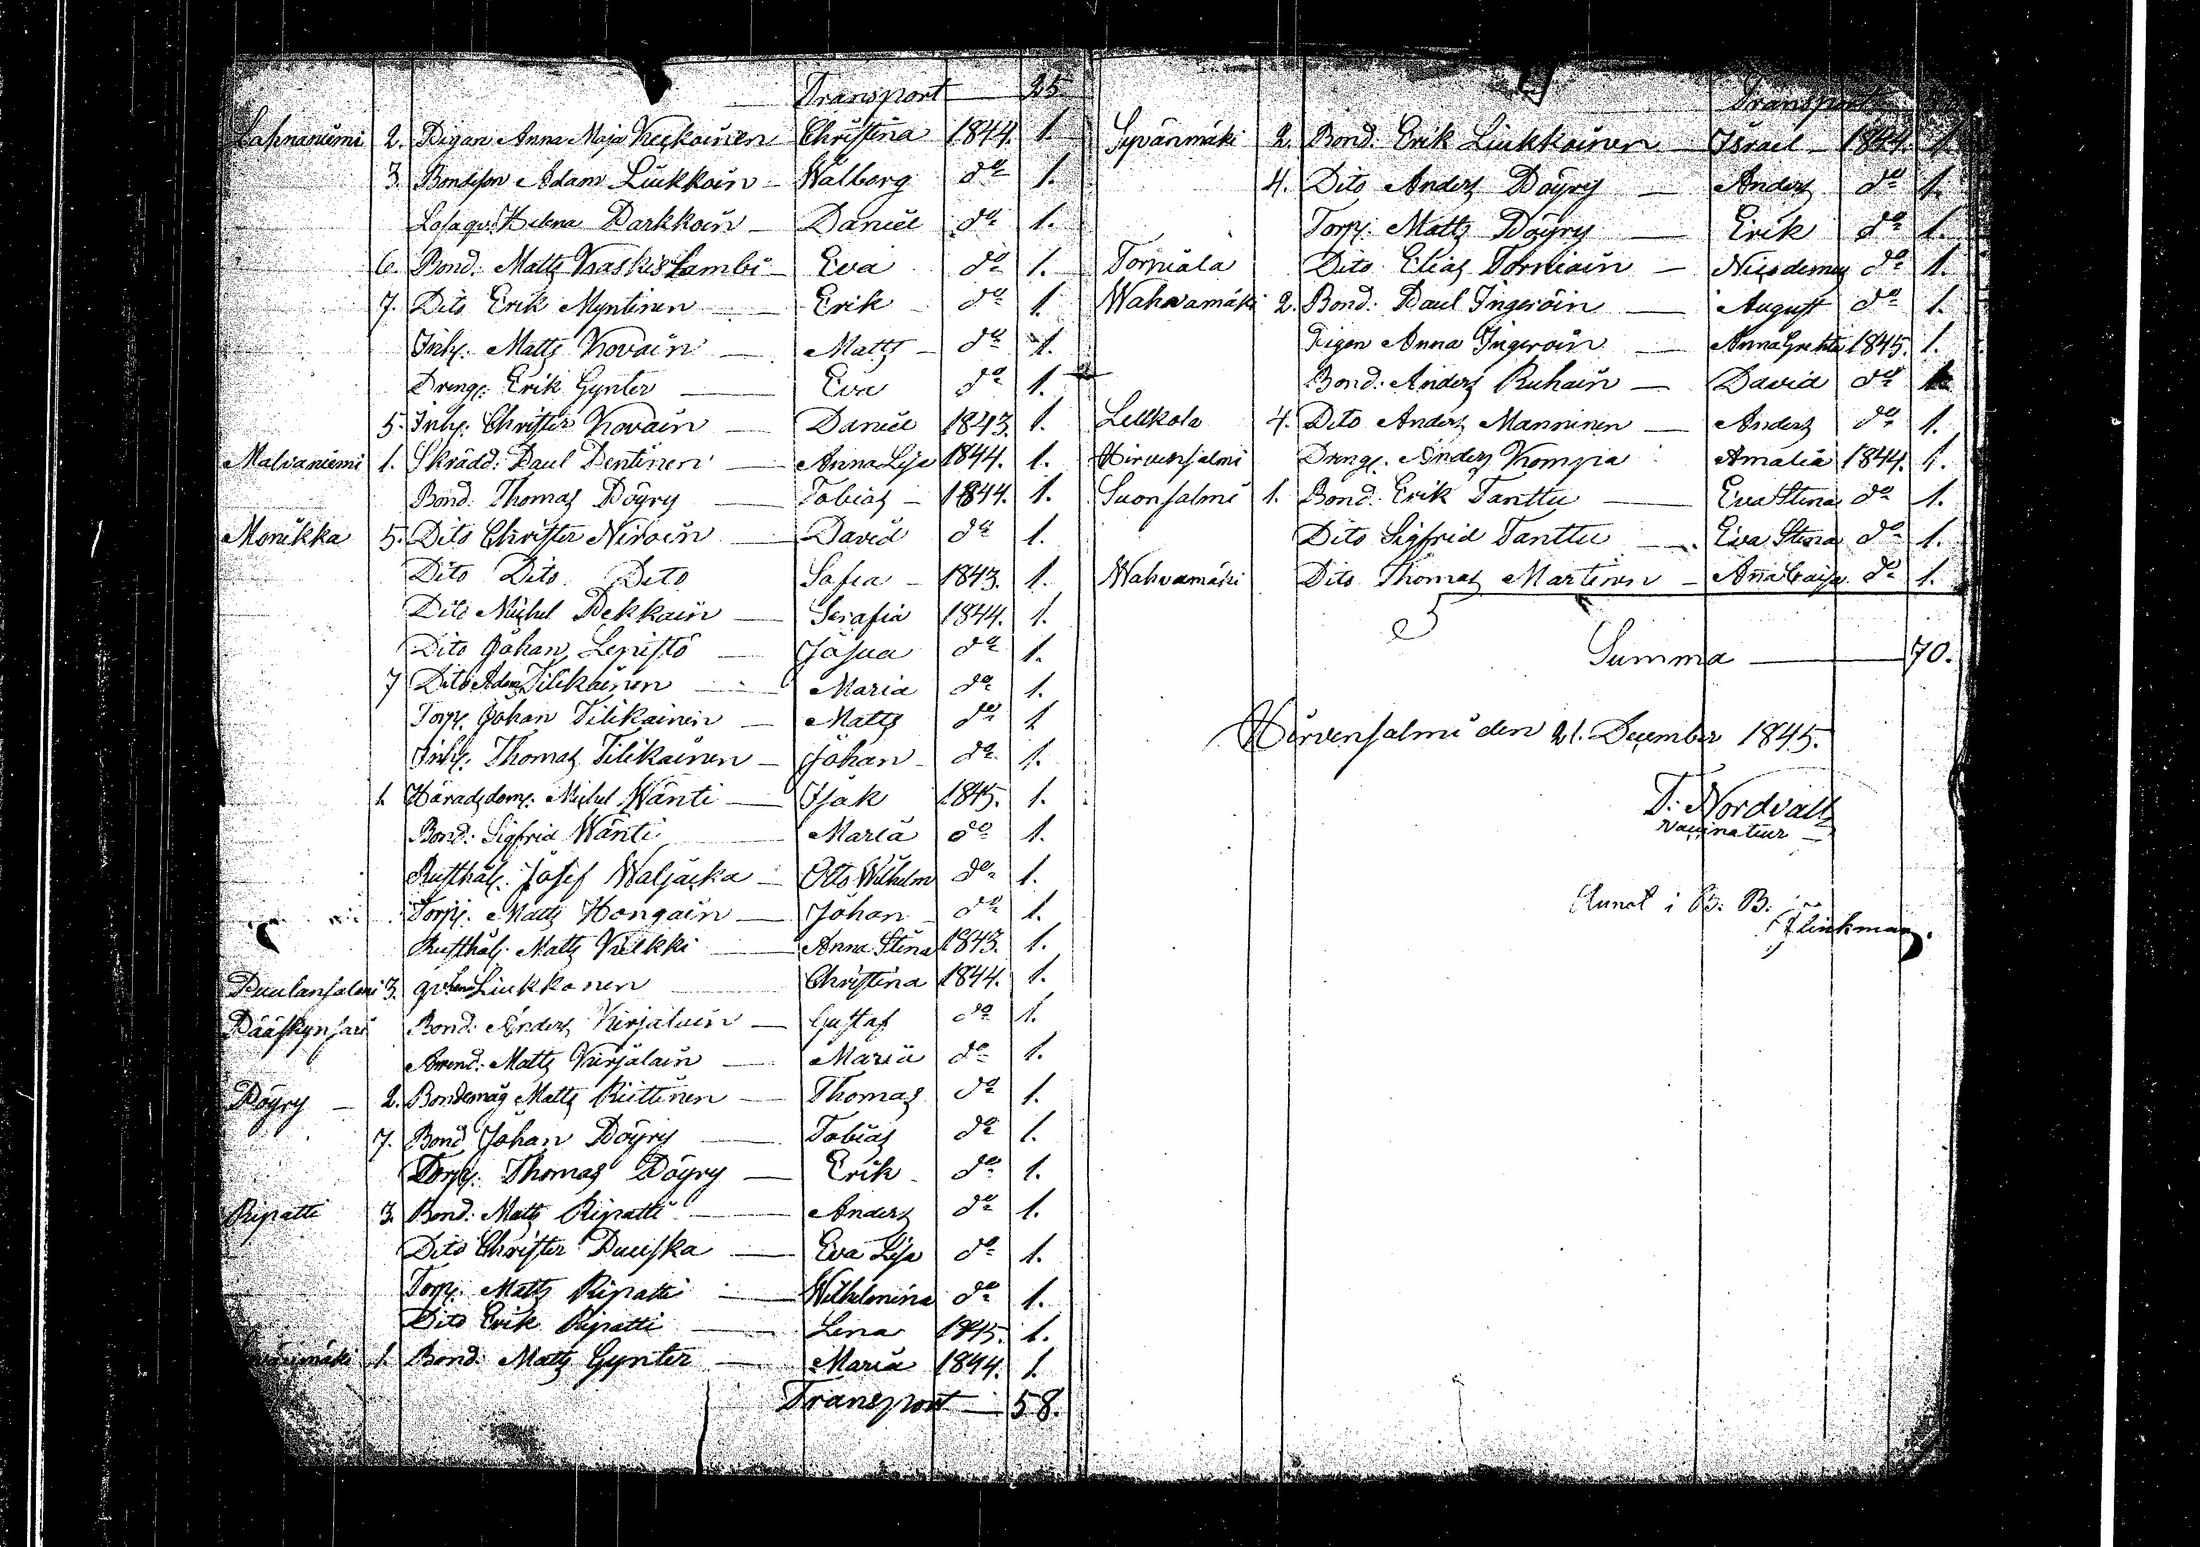 Transport 25
Lahnaniemi 2. Pigan Anna Maja Keckoinen Christina 1844. 1.
3. Bondeson Adam Liukkoin Walborg do 1.
Lösaqv. Helena Parkkoin Daniel do 1.
6. Bond. Matts Kaskislambi Eva do 1.
7. Dito Erik Myntinen Erik do 1
Inhy. Matts Kovain Matts do 1.
Dreng. Erik Gynter Eva do 1.
5. Inhy. Christer Kovain Daniel 1843. 1.
Malvaniemi 1. Skrädd. Paul Pentinen Anna Lisa 1844. 1.
Bond. Thomas Pöyry Tobias 1844. 1.
Monikka 5. Dito Christer Niroin David do 1.
Dito Dito Dito Sofia 1843. 1.
Dito Michel Pekkain Serafia 1844. 1.
Dito Johan Lepistö Josua do 1.
7 Dito Adam Tilikainen Maria do 1.
Torp. Johan Tilikainen Matts do 1
Inhy. Thomas Tilikainen Johan do 1.
1. Häradsdom. Michel Wänti Isak 1845. 1.
Bond. Sigfrid Wänti Maria do 1.
Rusthål. Josef Waljacka Otto Wilhelm do 1.
Torp. Matts Hongain Johan do 1.
Rusthål. Matts Kilkki Anna Stina 1843. 1.
Puulansalmi 3. qv. Lena Liukkonen Christina 1844. 1.
Pääskynsari Bond. Anders Kirjalain Gustaf do 1.
Arrend. Matts Kirjalain Maria do 1.
Pöyry 2. Bondemåg Matts Riittinen Thomas do 1.
7. Bond Johan Pöyry Tobias do 1.
Torp. Thomas Pöyry Erik do 1.
Ripatti 3. Bond. Matts Ripatti Anders do 1.
Dito Christer Puuska Eva Lisa do 1.
Torp. Matts Ripatti Wilhelmina do 1.
Dito Erik Ripatti Lena 1845. 1.
1. Bond. Matts Gynter Maria 1844. 1.
Transport 58.
Transport
Syvänmäki 2. Bond. Erik Liukkoinen Israel 1844. 1.
4. Dito Anders Pöyry Anders do 1.
Torp. Matts Pöyry Erik do 1.
Torniala Dito Elias Torniain Nicodemus do 1.
Wahvamäki 2. Bond. Paul Ingeroin August do 1.
Pigen Anna Ingeroin Anna Gretta 1845. 1.
Bond. Anders Ruhain David do 1.
Lelkola 4. Dito Anders Manninen Anders do 1.
Hirvensalmi Dreng. Anders Kompia Amalia 1844. 1.
Suonsalmi 1. Bond. Erik Tanttu Eva Stina do 1.
Dito Sigfrid Tanttu Eva Stina do 1.
Wahvamäki Dito Thomas Martinen Anna Caisa do 1.
Summa 70.
Hirvensalmi den 21. December 1845.
T. Nordvall
vaccinateur
Aunat i K: B:
Flinkman.